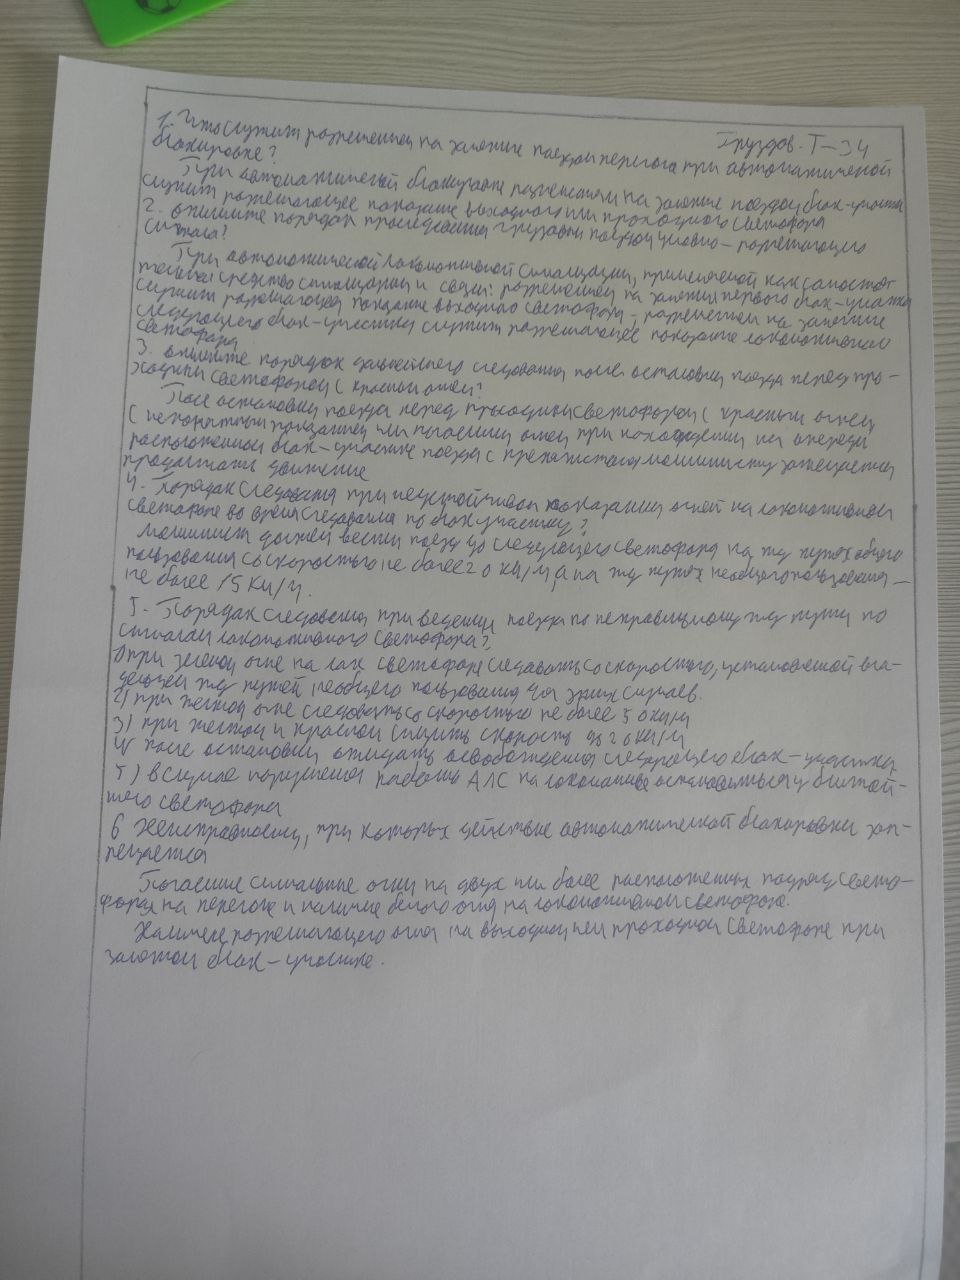 Груздов. Т-34
1. Что служит разрешением на занятие поездом перегона при автоматической
блокировке?
При автоматической блокировке разрешением на занятие поездом блок-участка
служит разрешающее показание выходного или проходного светофора
2. опишите порядок проследования грузовым поездом условно-разрешающего
сигнала?
При автоматической локомотивной сигнализации, применяемой как самостоят
тельное средство сигнализации и связи: разрешением на занятия первого блок-участка
служит разрешающее показание выходного светофора, разрешением на занятие
следующего блок-участка служит разрешающее показание локомотивного
светофора
3. опишите порядок дальнейшего следования после остановки поезда перед про-
ходным светофором с красным огнем?
После остановки поезда перед проходным светофором с красным огнем,
с непонятным показанием или погасшим огнем при нахождении на впереди
расположенном блок-участке поезда с препятствием машинисту запрещается
продолжать движение
4. Порядок следования при неустойчивом показании огней на локомотивном
светофоре во время следования по блок участку?
Машинист должен вести поезд до следующего светофора на жд путях общего
пользования со скоростью не более 20 км/ч а на жд путях необщего пользования —
не более 15 км/ч.
5. Порядок следования при ведении поезда по неправильному жд пути по
сигналам локомотивного светофора?
1) при зеленом огне на лок светофоре следовать со скоростью, установленной вла-
дельцем жд путей необщего пользования для этих случаев.
2) при желтом огне следовать со скоростью не более 50 км/ч
3) при желтом и красном снизить скорость до 20 км/ч
4) после остановки ожидать освобождения следующего блок-участка
5) в случае нарушения работы АЛС на локомотиве остановиться у ближай-
шего светофора
6 Неисправности, при которых действие автоматической блокировки зап-
рещается
Погасшие сигнальные огни на двух или более расположенных подряд свето-
форах на перегоне и наличие белого огня на локомотивном светофоре.
Наличие разрешающего огня на выходном или проходном светофоре при
занятом блок-участке.